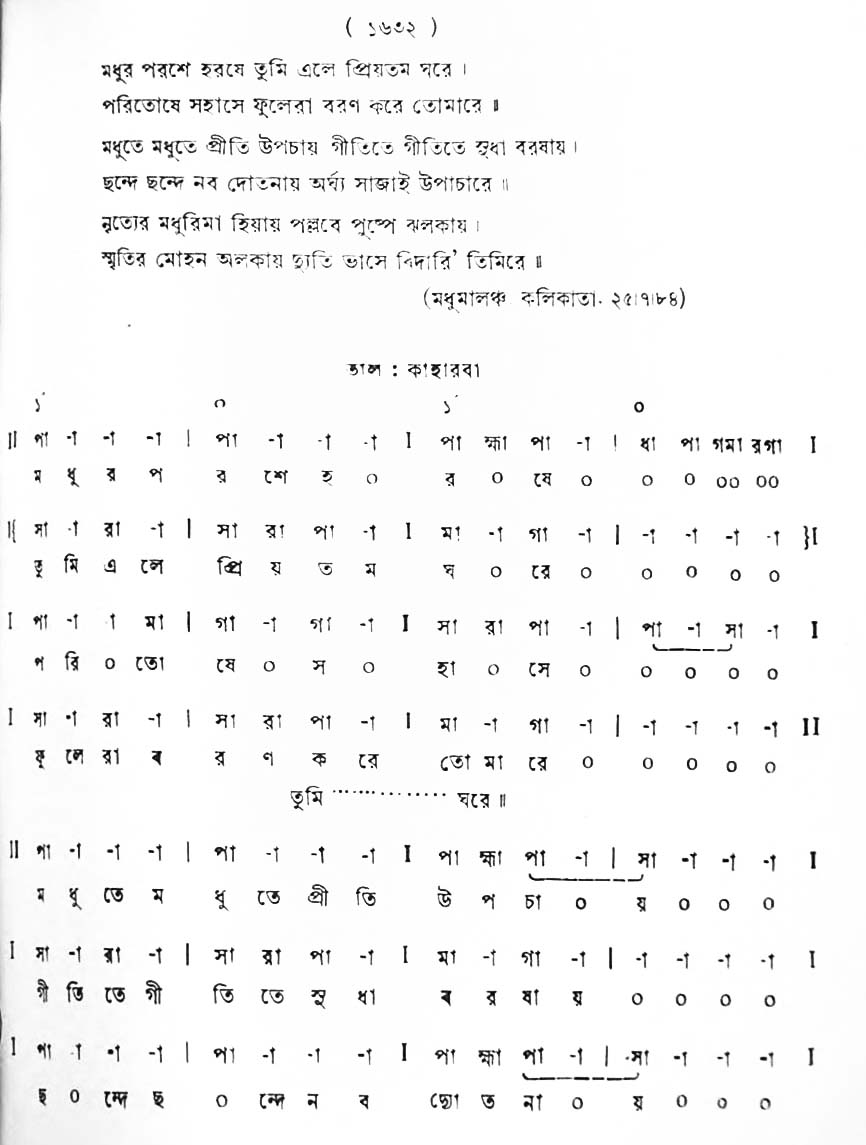 ( ১৬৩২ )
মধুর পরশে হরষে তুমি এলে প্রিয়তম ঘরে ।
পরিতোষে সহাসে ফুলেরা বরণ করে তোমারে ॥
মধুতে মধুতে প্রীতি উপচায় গীতিতে গীতিতে সুধা বরষায় ।
ছন্দে ছন্দে নব দ্যোতনায় অর্ঘ্য সাজাই উপাচারে ॥
নৃত্যের মধুরিমা হিয়ায় পল্লবে পুষ্পে ঝলকায় ।
স্মৃতির মোহন অলকায় দ্যুতি ভাসে বিদারি’ তিমিরে ॥
(মধুমালঞ্চ কলিকাতা. ২৫।৭।৮৪)
তাল : কাহারবা
১´ ০ ১´ ০
॥ পা -া -া -া | পা -া -া -া I পা হ্মা পা -া | ধা পা গমা রগা I
ম ধু র প র শে হ ০ র ০ ষে ০ ০ ০ ০০ ০০
I{ সা -া রা -া | সা রা পা -া I মা -া গা -া | -া -া -া -া }I
তু মি এ লে প্রি য় ত ম ঘ ০ রে ০ ০ ০ ০ ০
I পা -া া মা | গা -া গা -া I সা রা পা -া | পা -া সা -া I
প রি ০ তো ষে ০ স ০ হা ০ সে ০ ০ ০ ০ ০
I সা -া রা -া | সা রা পা -া I মা -া গা -া | -া -া -া -া II
ফু লে রা ব র ণ ক রে তো মা রে ০ ০ ০ ০ ০
তুমি ··············· ঘরে ॥
II পা -া -া -া | পা -া -া -া I পা হ্মা পা -া | সা -া -া -া I
ম ধু তে ম ধু তে প্রী তি উ প চা ০ য় ০ ০ ০
I সা -া রা -া | সা রা পা -া I মা -া গা -া | -া -া -া -া I
গী তি তে গী তি তে সু ধা ব র ষা য় ০ ০ ০ ০
I পা -া -া -া | পা -া -া -া I পা হ্মা পা -া | সা -া -া -া I
ছ ০ ন্দে ছ ০ ন্দে ন ব দ্যো ত না ০ য় ০ ০ ০